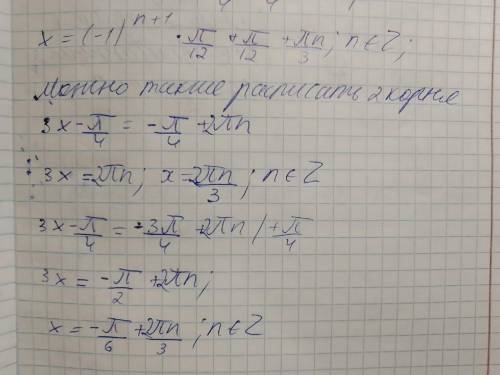 x = (-1)^{n+1} · π/12 + π/12 + πn/3; n∈Z;
Можно также расписать 2 корня
3x - π/4 = -π/4 + 2πn
3x = 2πn; x = 2πn/3; n∈Z
3x - π/4 = -3π/4 + 2πn / + π/4
3x = -π/2 + 2πn;
x = -π/6 + 2πn/3; n∈Z